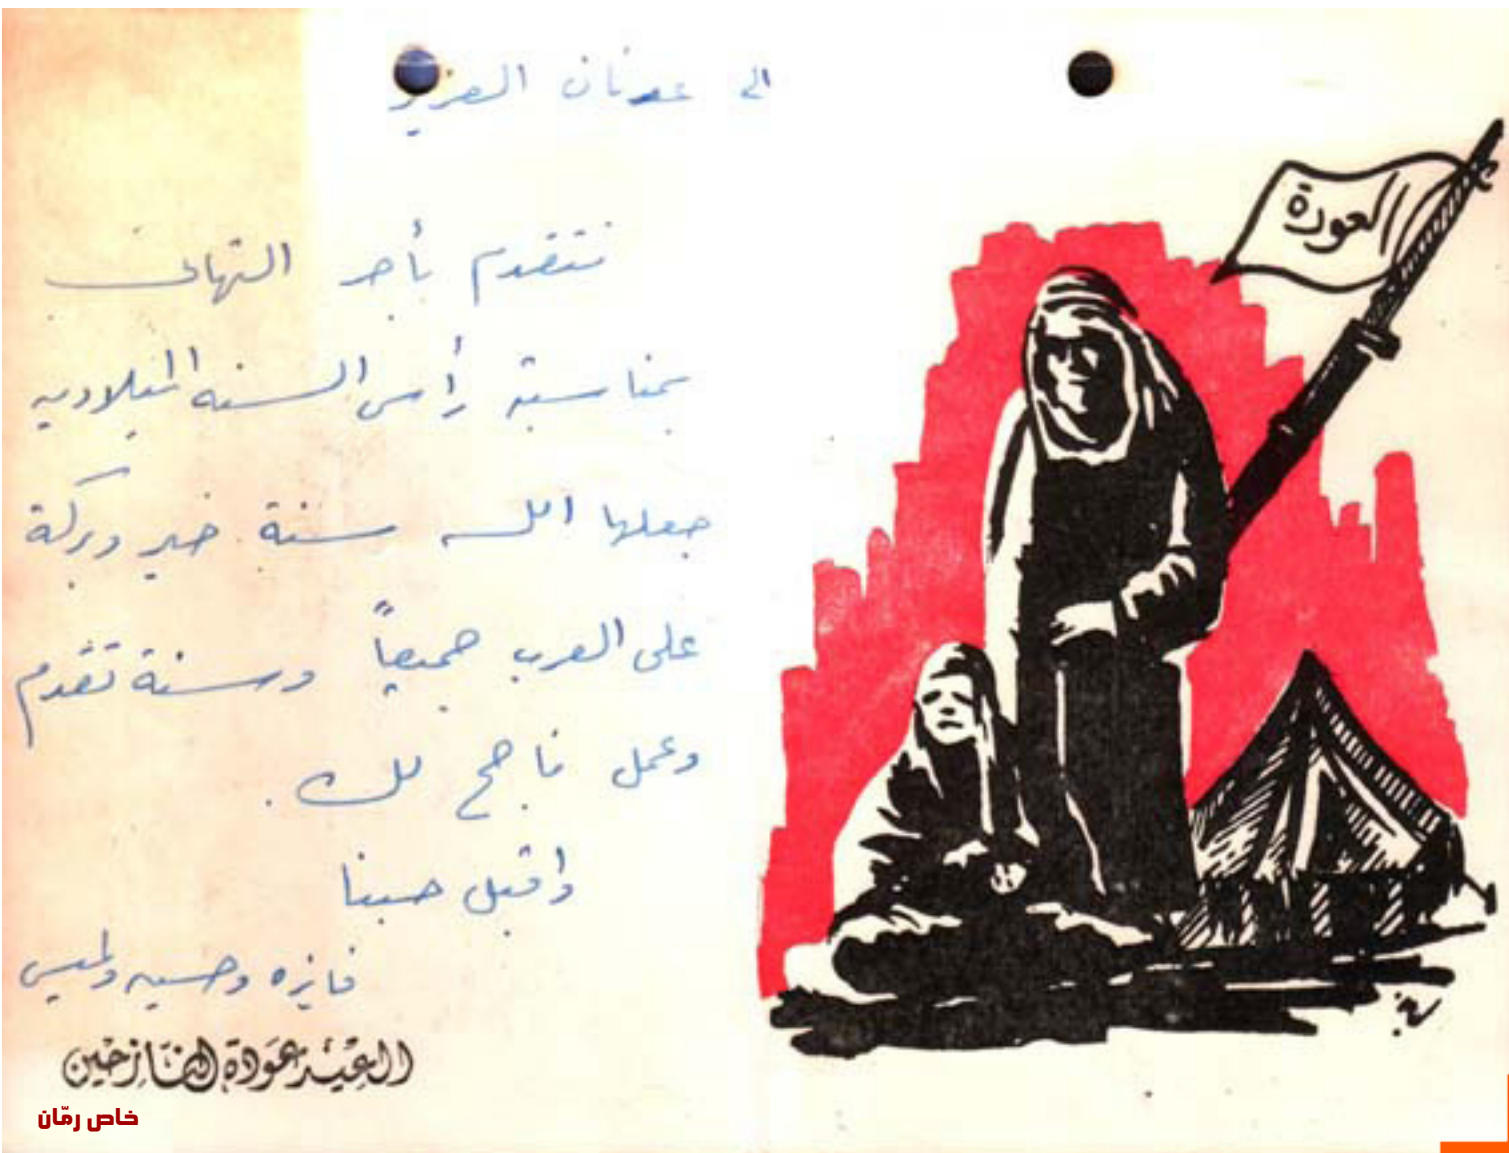 الى عدنان العزيز
نتقدم بأحر التهاني
بمناسبة رأس السنه الميلاديه
جعلها الله سنة خير وبركة
على العرب جميعاً وسنة تقدم
وعمل ناجح لك.
واقبل حبنا
فايزه وحسين ولميس
العيد عودة النازحين
خاص رمّان
العودة